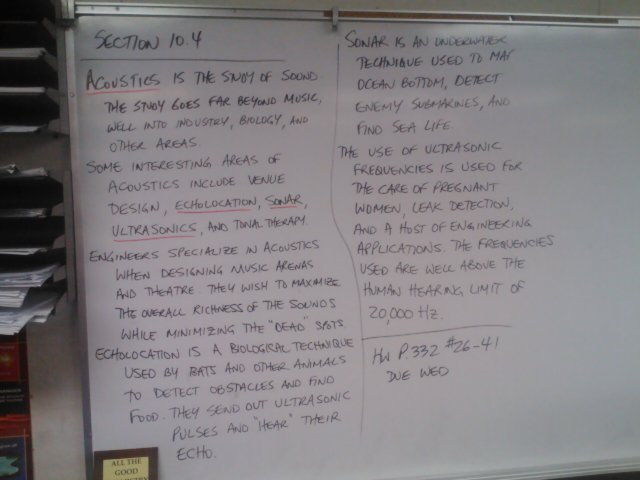 SECTION 10.4
ACOUSTICS IS THE STUDY OF SOUND.
THE STUDY GOES FAR BEYOND MUSIC,
WELL INTO INDUSTRY, BIOLOGY, AND
OTHER AREAS.
SOME INTERESTING AREAS OF
ACOUSTICS INCLUDE VENUE
DESIGN, ECHOLOCATION, SONAR,
ULTRASONICS, AND TONAL THERAPY.
ENGINEERS SPECIALIZE IN ACOUSTICS
WHEN DESIGNING MUSIC ARENAS
AND THEATRE. THEY WISH TO MAXIMIZE
THE OVERALL RICHNESS OF THE SOUNDS
WHILE MINIMIZING THE "DEAD" SPOTS.
ECHOLOCATION IS A BIOLOGICAL TECHNIQUE
USED BY BATS AND OTHER ANIMALS
TO DETECT OBSTACLES AND FIND
FOOD. THEY SEND OUT ULTRASONIC
PULSES AND "HEAR" THEIR
ECHO.
SONAR IS AN UNDERWATER
TECHNIQUE USED TO MAP
OCEAN BOTTOM, DETECT
ENEMY SUBMARINES, AND
FIND SEA LIFE.
THE USE OF ULTRASONIC
FREQUENCIES IS USED FOR
THE CARE OF PREGNANT
WOMEN, LEAK DETECTION,
AND A HOST OF ENGINEERING
APPLICATIONS. THE FREQUENCIES
USED ARE WELL ABOVE THE
HUMAN HEARING LIMIT OF
20,000 HZ.
HW P.332 #26-41
DUE WED
ALL THE
GOOD